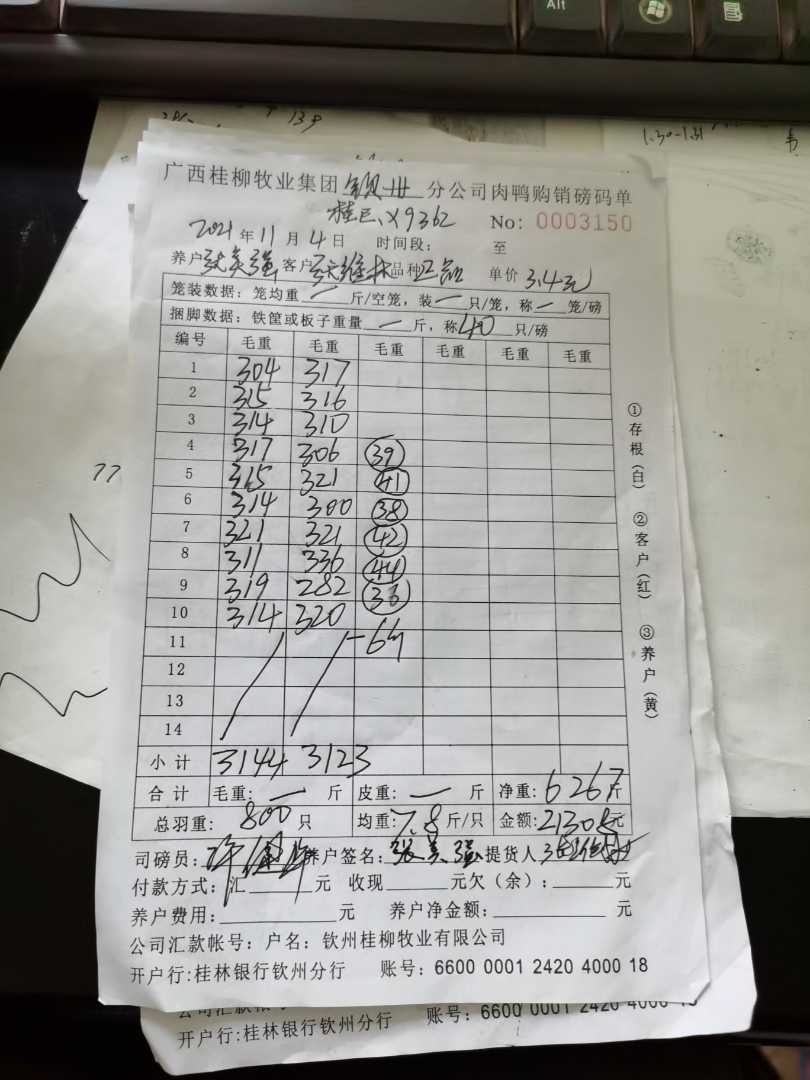 Alt
139
1.30-1.31
77
广西桂柳牧业集团钦州分公司肉鸭购销磅码单
桂E·X9362 No: 0003150
2021年11月4日 时间段: 至
养户张美强客户张维林品种正品 单价3.4元
笼装数据: 笼均重一斤/空笼, 装一只/笼, 称一笼/磅
捆脚数据: 铁筐或板子重量一斤, 称40只/磅
编号 毛重 毛重 毛重 毛重 毛重
1 304 317
2 315 316
3 314 310
4 317 306 39
5 315 321 41
6 314 300 38
7 321 321 42
8 311 336 44
9 319 282 36
10 314 320
11 -64
12
13
14
小计 3144 3123
合计 毛重: 一 斤 皮重: 一 斤 净重: 6267斤
总羽重: 800只 均重: 7.8斤/只 金额: 21308元
司磅员: 养户签名: 张美强 提货人
付款方式: 汇 元 收现 元欠(余): 元
养户费用: 元 养户净金额: 元
公司汇款帐号: 户名: 钦州桂柳牧业有限公司
开户行:桂林银行钦州分行 账号: 6600 0001 2420 4000 18
①存根(白) ②客户(红) ③养户(黄)
开户行:桂林银行钦州分行 账号: 6600 0001 2420 4000 18